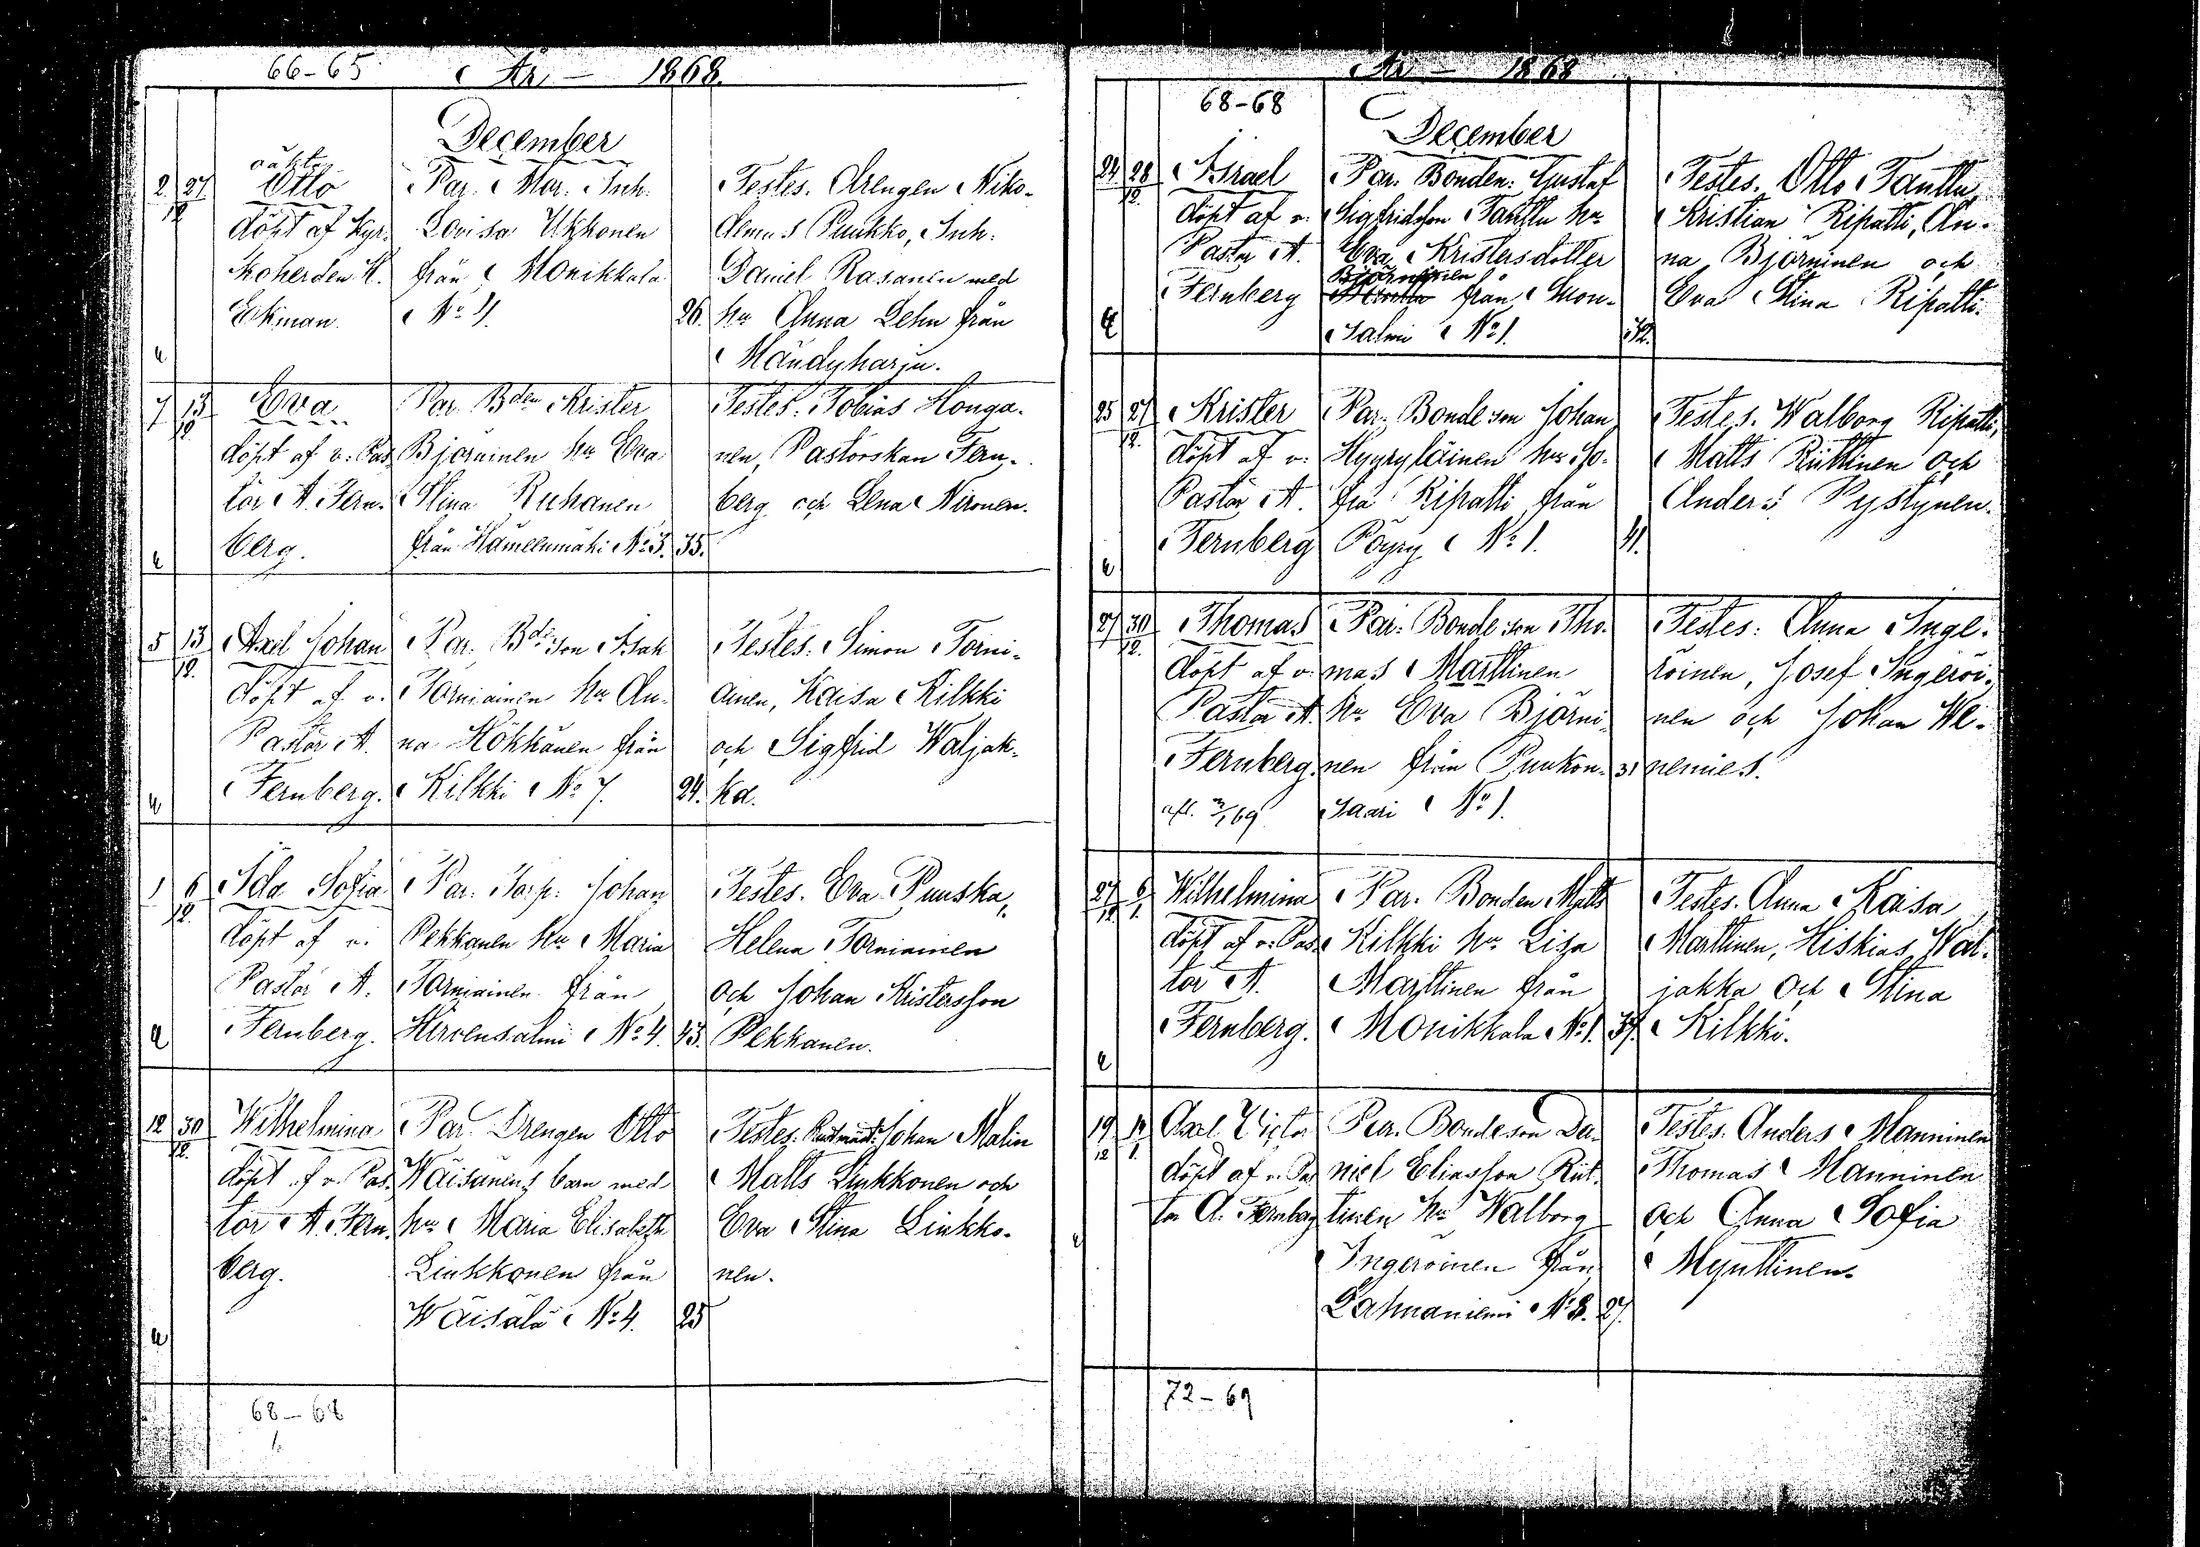 66-65 År 1868.
December
2 27/12 oäkta Otto döpt af Kyrkoherden K. Eckman.
Par. Hor. Inh.
Lovisa Ukkonen
från Monikkala
No 4. 26.
Testes. Drengen Niko-
demus Puukko, Inh.
Daniel Rasanen med
hu Anna Lehn från
Mändyharju.
7 13/12 Eva
döpt af v. Pas-
tor A. Fern-
berg.
Par. Bden Krister
Björninen hu Eva
Stina Ruhanen
från Hämeenmäki No 3. 35.
Testes. Tobias Honga-
nen, Pastorskan Fern-
berg och Lena Nironen.
5 13/12 Axel Johan
döpt af v.
Pastor A.
Fernberg.
Par. Bdeson Isak
Torniainen hu An-
na Hökkänen från
Kilkki No 7. 24.
Testes. Simon Torni-
ainen, Kaisa Kilkki
och Sigfrid Waljak-
ka.
1 6/12 Ida Sofia
döpt af v.
Pastor A.
Fernberg.
Par. Torp. Johan
Pekkanen hu Maria
Torniainen från
Hirvensalmi No 4. 43.
Testes. Eva Puuska,
Helena Torniainen
och Johan Kristersson
Pekkanen.
12 30/12 Wilhelmina
döpt af v. Pas-
tor A. Fern-
berg.
Par. Drengen Otto
Wäisänens barn med
hu Maria Elisabeth
Linkkonen från
Wäisälä No 4. 25
Testes. Johan Malin
Matts Linkkonen och
Eva Stina Linkko-
nen.
68-68
År 1868
68-68
December
24 28/12 Israel
döpt af v.
Pastor A.
Fernberg
Par. Bonden Gustaf
Sigfridsson Tanttu hu
Eva Kristersdotter
Björninen från Suon-
salmi No 1. 32.
Testes. Otto Tanttu,
Kristian Ripatti, An-
na Björninen och
Eva Stina Ripatti.
25 27/12 Krister
döpt af v.
Pastor A.
Fernberg
Par. Bondeson Johan
Hyyryläinen hu So-
fia Ripatti från
Pöyry No 1. 41.
Testes. Walborg Ripatti,
Matts Ruttinen och
Anders Pystynen.
27 30/12 Thomas
döpt af v.
Pastor A.
Fernberg.
afl. 2/1 69
Par. Bondeson Tho-
mas Marttinen
hu Eva Björni-
nen från Puukon- 31
saari No 1.
Testes. Anna Inge-
röinen, Josef Ingeröi-
nen och Johan We-
nemies.
27/12 6/1. Wilhelmina
döpt af v. Pas-
tor A.
Fernberg.
Par. Bonden Matts
Kilkki hu Lisa
Marttinen från
Monikkala No 1. 37.
Testes. Anna Kaisa
Marttinen, Hiskias Wal-
jakka och Stina
Kilkki.
19/12 Carl Victor
döpt af v. Pas-
tor A. Fernberg
Par. Bondeson Da-
niel Eliasson Rut-
tinen hu Walborg
Ingeröinen från
Lahnaniemi No 8. 27.
Testes. Anders Manninen
Thomas Manninen
och Anna Sofia
Mynttinen.
72-69